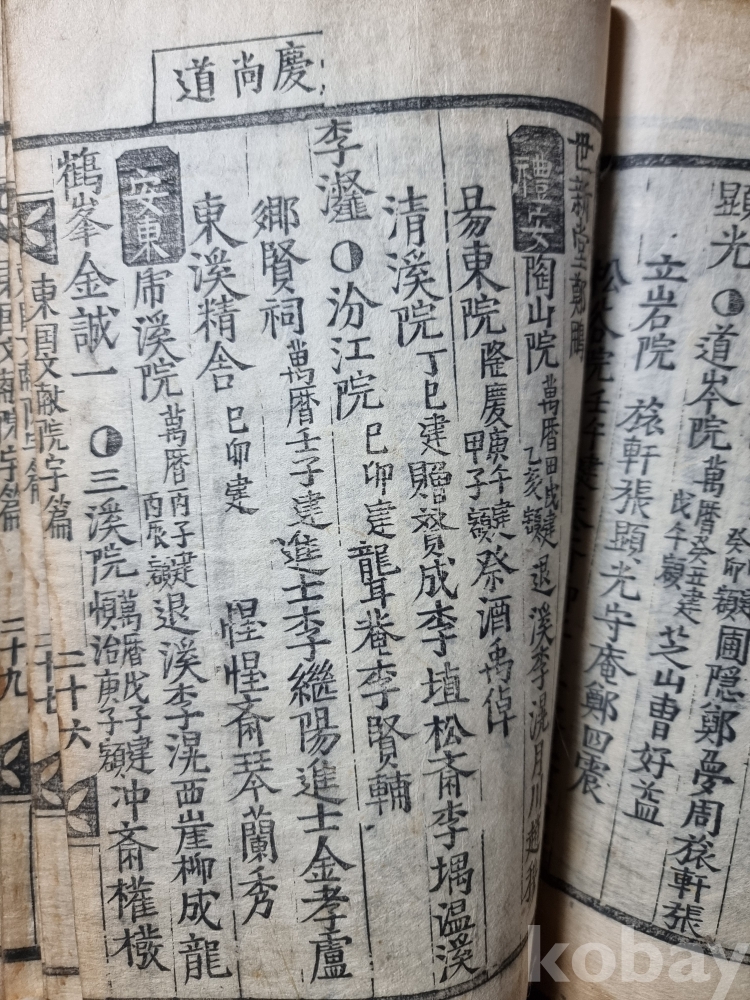 癸卯額圃隱鄭夢周旅軒張
顯光◑道岑院萬暦癸丑建戊午額芝山曺好益
立岩院旅軒張顯光守庵鄭四震
院壬午建
慶尚道
世新堂鄭鵬
禮安陶山院萬暦甲戌建乙亥額退溪李滉月川趙
易東院隆慶庚午建甲子額祭酒禹倬
清溪院丁巳建贈贊成李埴松斎李堣温溪
李瀣◑汾江院己卯建聾巖李賢輔
鄕賢祠萬暦壬子建進士李繼陽進士金孝盧
東溪精舍己卯建惺惺斎琴蘭秀
安東虎溪院萬暦丙子建丙辰額退溪李滉西崖柳成龍
鶴峯金誠一◑三溪院萬暦戊子建順治庚子額冲斎權橃
東国文献院宇篇
二十六
二十七
二十九
kobay